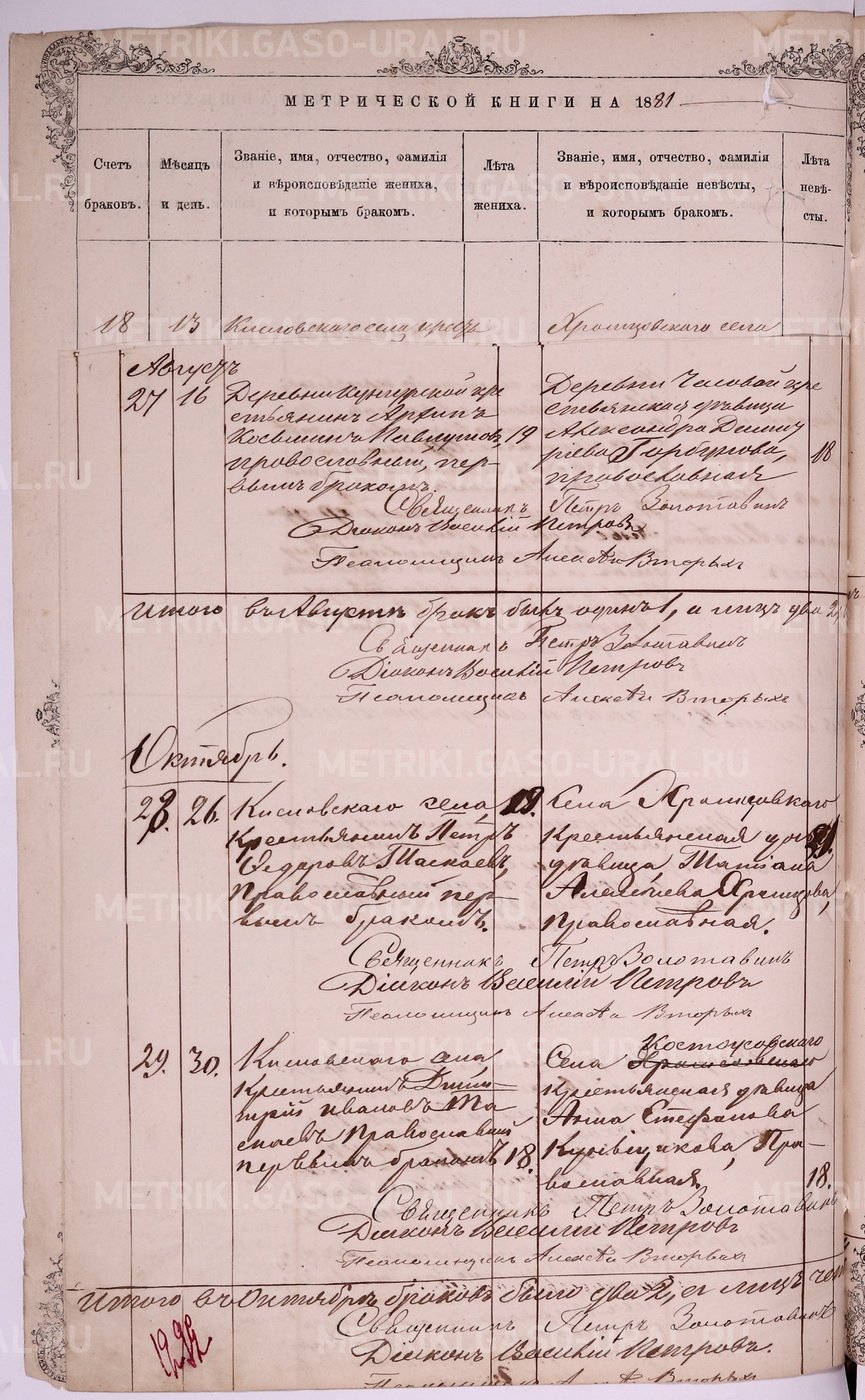 METRIKI.GASO-URAL.RU
МЕТРИЧЕСКОЙ КНИГИ НА 1881
Счетъ браковъ.
Мѣсяцъ и день.
Званіе, имя, отчество, фамилія
и вѣроисповѣданіе жениха,
и которымъ бракомъ.
Лѣта жениха.
Званіе, имя, отчество, фамилія
и вѣроисповѣданіе невѣсты,
и которымъ бракомъ.
Лѣта невѣ-
сты.
18 13 Кисловскаго села Хромцовскаго села
Августъ
27 16 Деревни Кунгурской кре
стьянинъ Архипъ
Косьминъ 19
православный, пер-
вымъ бракомъ.
Деревни Часовой кре
стьянская дѣвица
Александра Димит
ріева Горбунова, 18
православная
Священникъ Петръ Золотавинъ
Діаконъ Василій Петровъ
Псаломщикъ Алексѣй Вторыхъ
Итого въ Августѣ бракъ былъ одинъ 1, а лицъ два 2
Священникъ Петръ Золотавинъ
Діаконъ Василій Петровъ
Псаломщикъ Алексѣй Вторыхъ
Октябрь.
28. 26. Кисловскаго села
Крестьянинъ Петръ
Ѳедоровъ Таскаевъ,
Православный пер-
вымъ бракомъ.
Села Хромцовскаго
крестьянская
дѣвица, Татіана
Алексѣева Хромцова,
православная.
Священникъ Петръ Золотавинъ
Діаконъ Василій Петровъ
Псаломщикъ Алексѣй Вторыхъ
29. 30. Кисловскаго села
Крестьянинъ Дими-
трій Ивановъ Та-
скаевъ Православный
первымъ бракомъ 18.
Села Костоусовскаго
крестьянская дѣвица
Анна Стефанова
Пра-
вославная. 18.
Священникъ Петръ Золотавинъ
Діаконъ Василій Петровъ
Псаломщикъ Алексѣй Вторыхъ
Итого въ Октябрѣ браковъ было два 2, а лицъ
Священникъ Петръ Золотавинъ
Діаконъ Василій Петровъ.